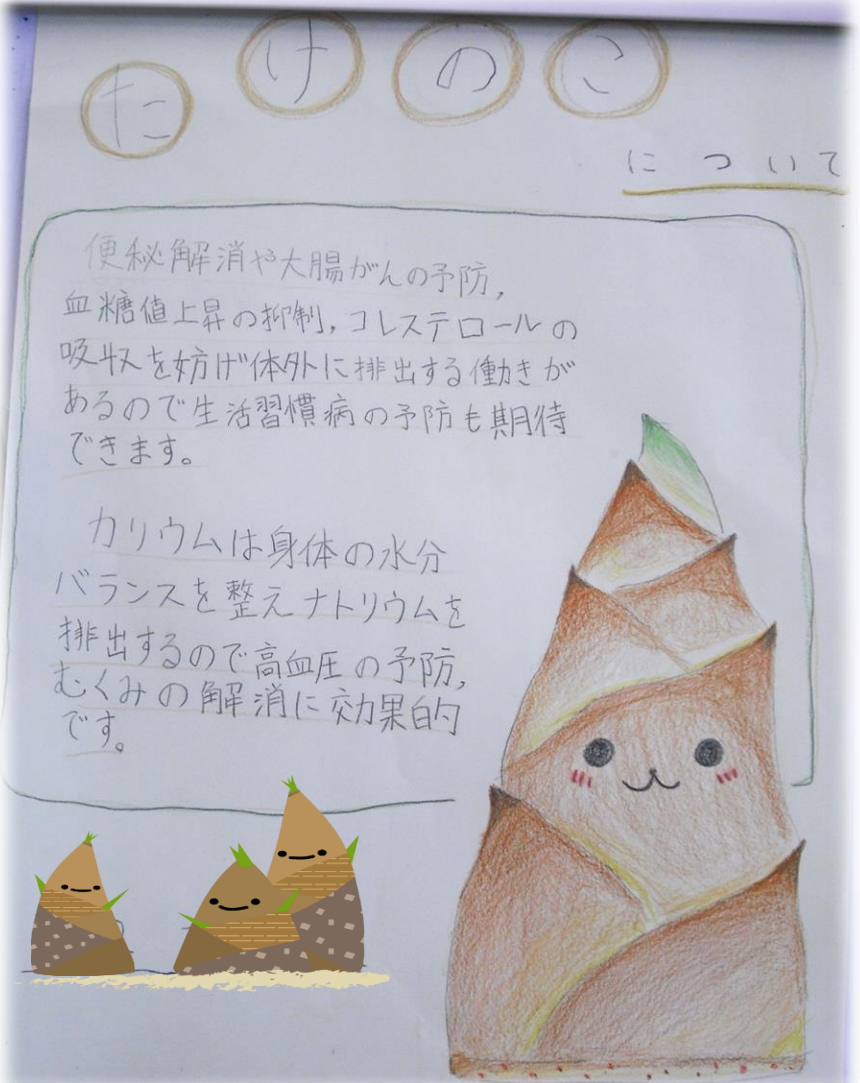 たけのこ
について
便秘解消や大腸がんの予防,
血糖値上昇の抑制,コレステロールの
吸収を妨げ体外に排出する働きが
あるので生活習慣病の予防も期待
できます。
カリウムは身体の水分
バランスを整えナトリウムを
排出するので高血圧の予防,
むくみの解消に効果的
です。